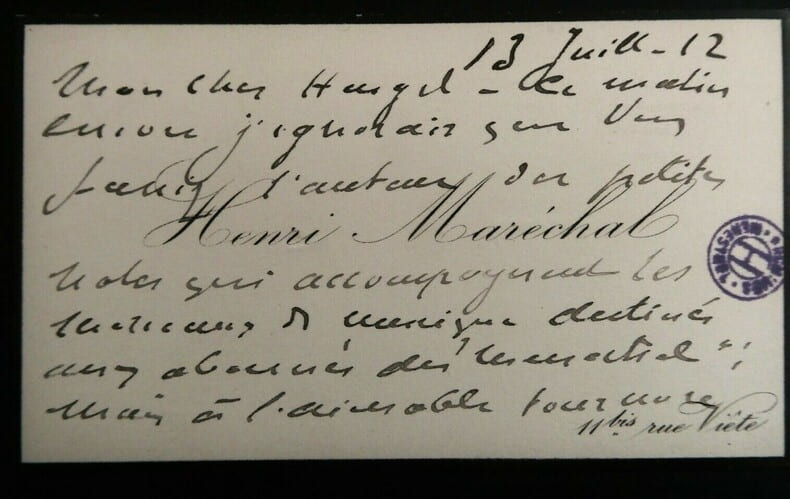 13 Juill - 12
Mon cher Heugel - Ce matin
encore j'ignorais que Vous
fussiez l'auteur des petites
Henri Maréchal
notes qui accompagnent les
morceaux de musique destinés
aux abonnés du "Menestrel";
mais à l'aimable tournure
11bis rue Viète
MENESTREL
H